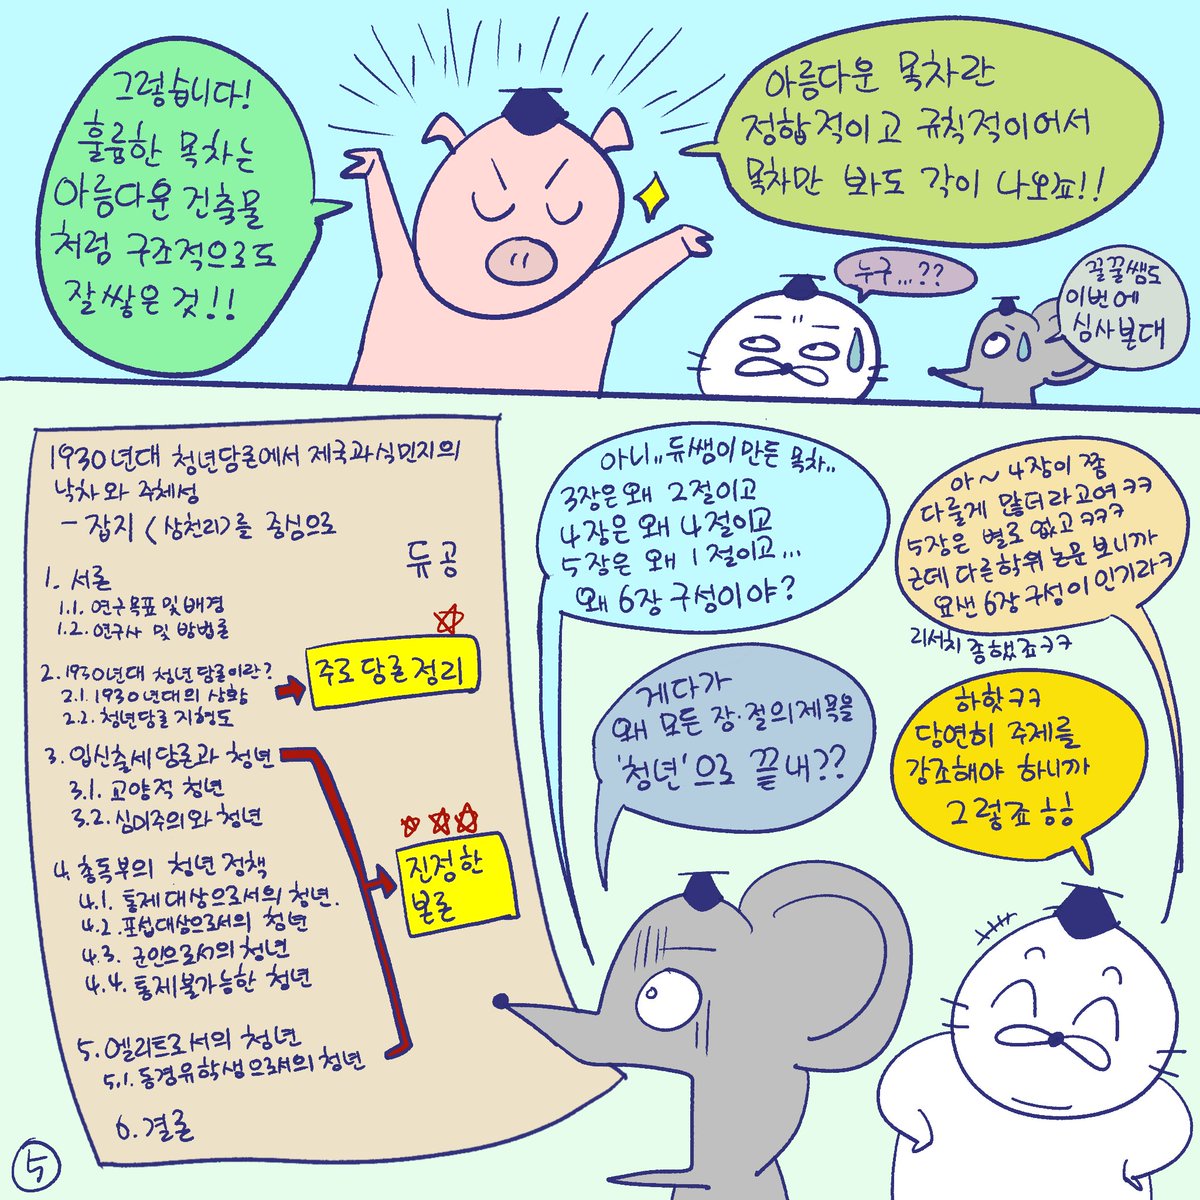 그렇습니다!
훌륭한 목차는
아름다운 건축물
처럼 구조적으로도
잘 쌓은 것!!
아름다운 목차란
정합적이고 규칙적이어서
목차만 봐도 각이 나오죠!!
누구...??
꿀꿀쌤도
이번에
심사본대
1930년대 청년담론에서 제국과 식민지의
낙차와 주체성
- 잡지 <삼천리>를 중심으로
듀공
1. 서론
1.1. 연구목표 및 배경
1.2. 연구사 및 방법론
2. 1930년대 청년담론이란?
2.1. 1930년대의 상황
2.2. 청년담론 지형도
주로 담론 정리
3. 입신출세담론과 청년
3.1. 교양적 청년
3.2. 심미주의와 청년
4. 총독부의 청년 정책
4.1. 통제대상으로서의 청년.
4.2. 포섭대상으로서의 청년
4.3. 군인으로서의 청년
4.4. 통제불가능한 청년
진정한
본론
5. 엘리트로서의 청년
5.1. 동경유학생으로서의 청년
6. 결론
아니.. 듀쌤이 만든 목차..
3장은 왜 2절이고
4장은 왜 4절이고
5장은 왜 1절이고...
왜 6장 구성이야?
아~ 4장이 쫌
다룰게 많더라고여 ㅋㅋ
5장은 별로 없고 ㅋㅋㅋ
근데 다른 학위 논문 보니까
요샌 6장 구성이 인기라ㅋ
리서치 좀 했죠ㅋㅋ
게다가
왜 모든 장·절의 제목을
'청년'으로 끝내??
하핫ㅋㅋ
당연히 주제를
강조해야 하니까
그렇죠 ㅎㅎ
5